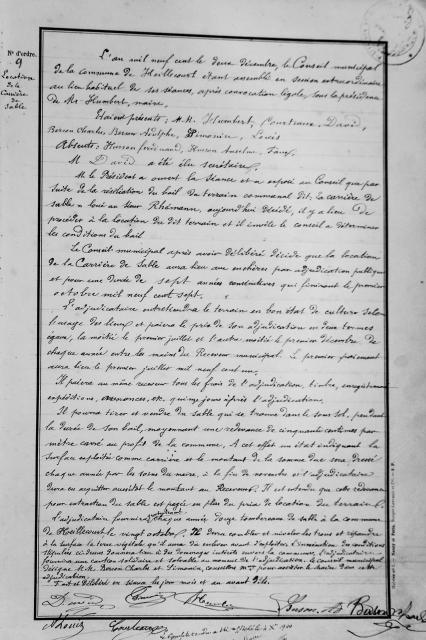 N° d'ordre.
9
Location
de la
Carrière
de
Sable
L'an mil neuf cent le deux décembre, le Conseil municipal
de la commune de Heillecourt étant assemblé en session extraordinaire
au lieu habituel de ses séances, après convocation légale, sous la présidence
de Mr Humbert, maire.
Etaient présents : M.M. Humbert, Courteaux, David,
Berson Charles, Berson Adolphe, Simonin, Louis
Absents : Husson Ferdinand, Husson Anselme,
M. David a été élu secrétaire.
M. le Président a ouvert la séance et a exposé au Conseil que par
suite de la résiliation du bail du terrain communal dit, la carrière de
sable, loué au sieur Rhémann, aujourd'hui décédé, il y a lieu de
procéder à la location du dit terrain et il invite le conseil à déterminer
les conditions du bail.
Le Conseil municipal après avoir délibéré décide que la location
de la Carrière de Sable aura lieu aux enchères par adjudication publique
et pour une durée de sept années consécutives qui finiront le premier
octobre mil neuf cent sept.
L'adjudicataire entretiendra le terrain en bon état de culture selon
l'usage des lieux et paiera le prix de son adjudication en deux termes
égaux, la moitié le premier juillet et l'autre moitié le premier décembre de
chaque année entre les mains du Receveur municipal. Le premier paiement
aura lieu le premier juillet mil neuf cent un.
Il paiera au même receveur tous les frais de l'adjudication, timbre, enregistrement
expéditions, annonces, etc. quinze jours après l'adjudication.
Il pourra tirer et vendre du sable qui se trouve dans le sous sol, pendant
la durée de son bail, moyennant une redevance de cinquante centimes par
mètre carré au profit de la commune. A cet effet un état indiquant la
surface exploitée comme carrière et le montant de la somme due sera dressé
chaque année par les soins du maire, à la fin de novembre et l'adjudicataire
devra en acquitter aussitôt le montant au Receveur. Il est entendu que cette redevance
pour extraction de sable est payée en plus du prix de location du terrain.
L'adjudicataire fournira chaque année douze tombereaux de sable à la commune
de Heillecourt, le vingt octobre. Il devra combler et niveler les trous et répandre
à la surface la terre végétale qu'il aura eu soin avant d'exploiter
fournira une caution solidaire et solvable au moment de l'adjudication. Le conseil municipal
désigne M.M. Berson Charles et Simonin, conseillers pour assister le maire dans cette
adjudication.
Fait et délibéré en séance les jour mois et an avant dits.
David
Humbert
Simonin
Berson
Courteaux